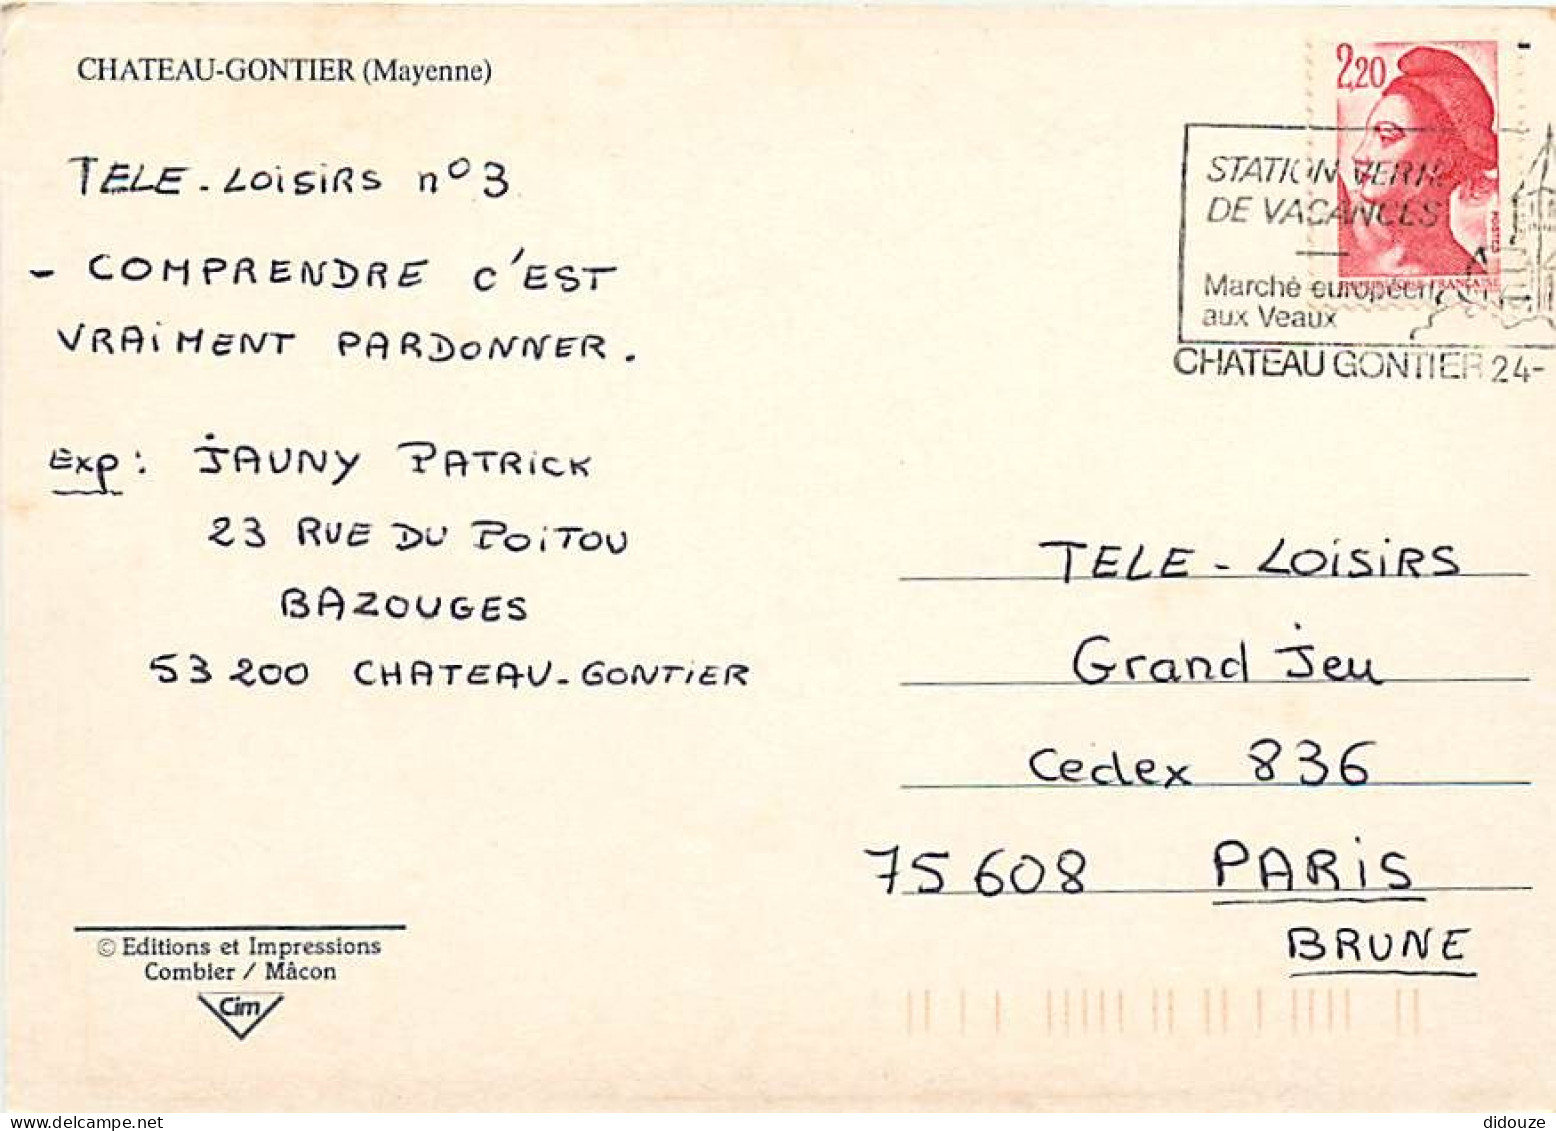 CHATEAU-GONTIER (Mayenne)
TELE-LOISIRS n°3
- COMPRENDRE C'EST
VRAIMENT PARDONNER.
Exp: JAUNY PATRICK
23 RUE DU POITOU
BAZOUGES
53200 CHATEAU-GONTIER
© Editions et Impressions
Combier / Mâcon
Cim
2,20
POSTES
FRANÇAISE
STATION
DE VACANCES
Marché européen
aux Veaux
CHATEAU GONTIER 24-
TELE-LOISIRS
Grand Jeu
Cedex 836
75608 PARIS
BRUNE
didouze